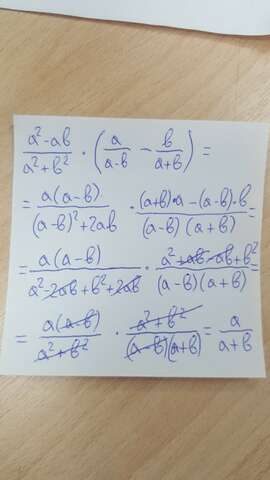 \frac{a^2-ab}{a^2+b^2} \cdot \left( \frac{a}{a-b} - \frac{b}{a+b} \right) =
= \frac{a(a-b)}{(a-b)^2+2ab} \cdot \frac{(a+b) \cdot a - (a-b) \cdot b}{(a-b)(a+b)} =
= \frac{a(a-b)}{a^2-2ab+b^2+2ab} \cdot \frac{a^2+ab-ab+b^2}{(a-b)(a+b)} =
= \frac{a(a-b)}{a^2+b^2} \cdot \frac{a^2+b^2}{(a-b)(a+b)} = \frac{a}{a+b}